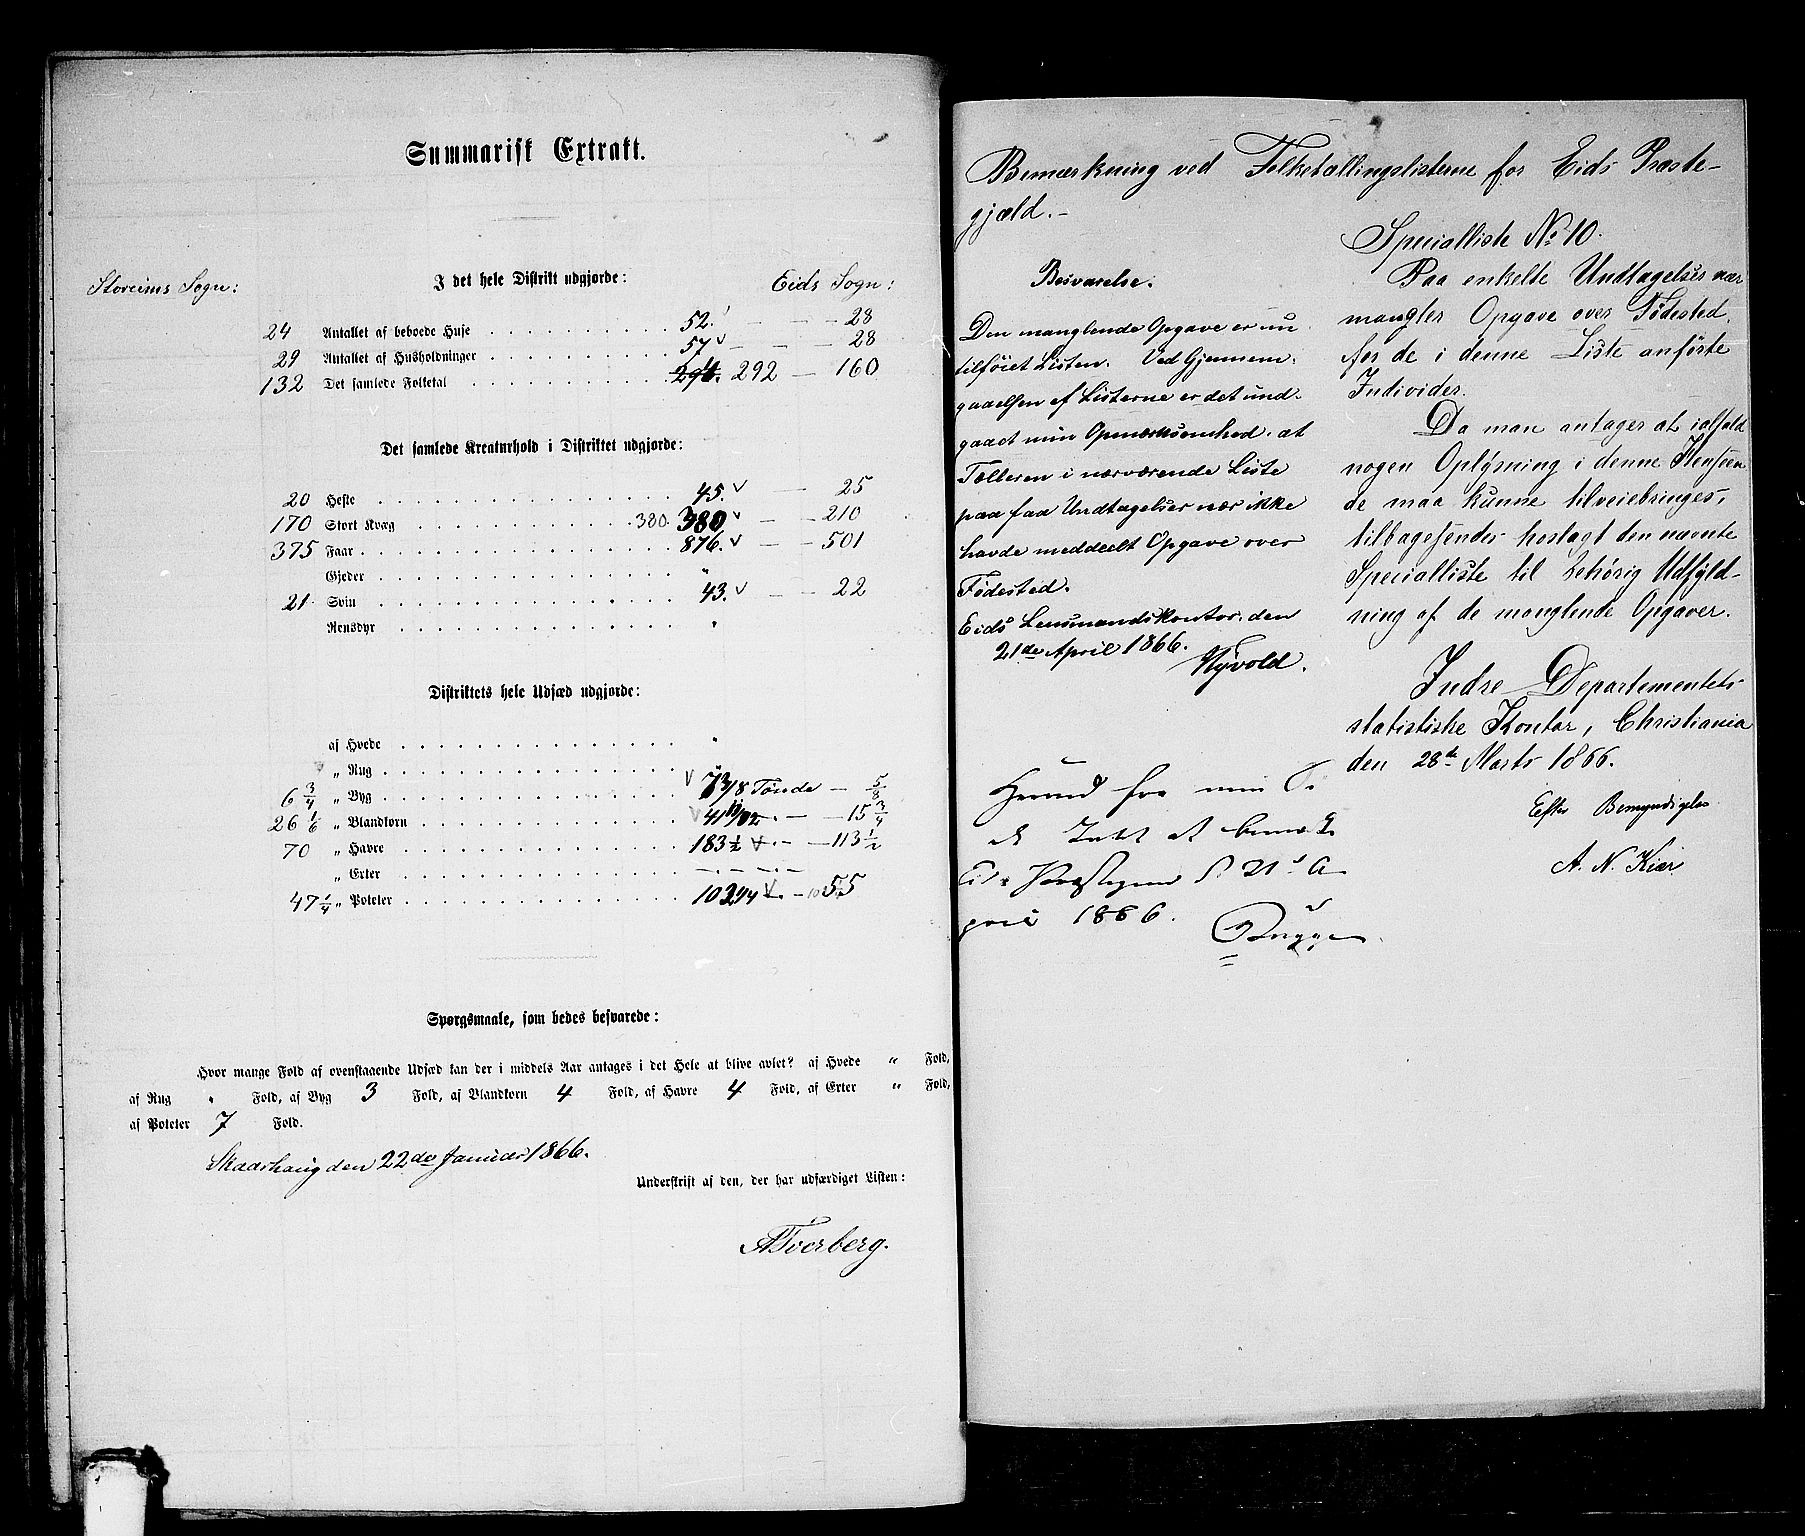 Summarisk Extrakt.
I det hele Distrikt udgjorde:
Storeims Sogn: Eids Sogn:
24 Antallet af beboede Huse 52. — — 28
29 Antallet af Husholdninger 57 — — 28
132 Det samlede Folketal 294. 292 — 160
Det samlede Kreaturhold i Distriktet udgjorde:
20 Heste 45. — 25
170 Stort Kvæg 380. 380 — 210
375 Faar 876. — 501
Gjeder "
21 Svin 43. — 22
Rensdyr "
Distriktets hele Udsæd udgjorde:
af Hvede "
„ Rug "
6 3/4 „ Byg 7 3/8 Tønde — 5/8
26 1/6 „ Blandkorn — 15 3/4
70 „ Havre 183 1/2 — 113 1/2
„ Erter —
47 1/4 „ Poteter — 55
Spørgsmaale, som bedes besvarede:
Hvor mange Fold af ovenstaaende Udsæd kan der i middels Aar antages i det Hele at blive avlet? af Hvede " Fold,
af Rug " Fold, af Byg 3 Fold, af Blandkorn 4 Fold, af Havre 4 Fold, af Erter " Fold,
af Poteter 7 Fold.
Skaarhaug den 22de Januar 1866.
Underskrift af den, der har udfærdiget Listen:
ATverberg.
Bemærkning ved Folketællingslisterne for Eids Præste-
gjæld.-
Specialliste No 10.
Paa enkelte Undtagelser nær
mangler Opgave over Fødested
for de i denne Liste anførte
Individer.
Da man antager at ialfald
nogen Oplysning i denne Henseen
de maa kunne tilveiebringes,
tilbagesendes hoslagt den nævnte
Specialliste til behørig Udfyld-
ning af de manglende Opgaver.
Indre Departementets
statistiske Kontor, Christiania
den 28de Marts 1866.
Efter Bemyndigelse
A. N. Kiær
Besvarelse.
Den manglende Opgave er nu
tilføiet Listen. Ved Gjennem-
gaaelsen af Listerne er det und-
gaaet min Opmærksomhed, at
Tælleren i nærværende Liste
paa faa Undtagelser nær ikke
havde meddeelt Opgave over
Fødested.
Eids Lensmandskontor, den
21de April 1866.
Myvold.
min
at
21 A
pril 1866.
Bugge